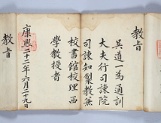 教旨
吳道一為通訓
大夫行司諫院
司諫知製教兼
校書館校理西
學教授者
康熙二十二年六月二十九日
教旨